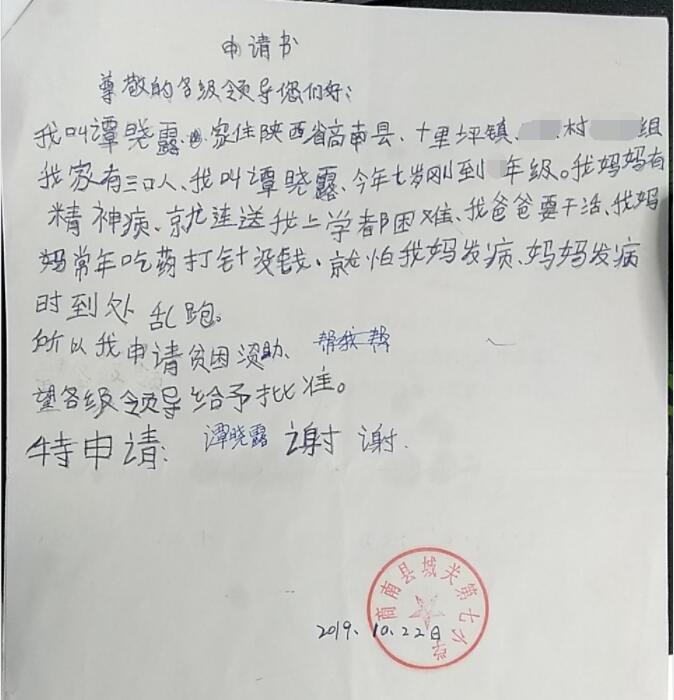 申请书
尊敬的各级领导您们好：
我叫谭晓露、家住陕西省商南县、十里坪镇、村组
我家有三口人、我叫谭晓露、今年七岁刚到年级。我妈妈有
精神病、就连送我上学都困难、我爸爸要干活、我妈
妈常年吃药打针没钱、就怕我妈发病、妈妈发病
时到处乱跑。
所以我申请贫困资助、帮我帮
望各级领导给予批准。
特申请：谭晓露 谢谢.
商南县城关第七小学
2019、10.22日